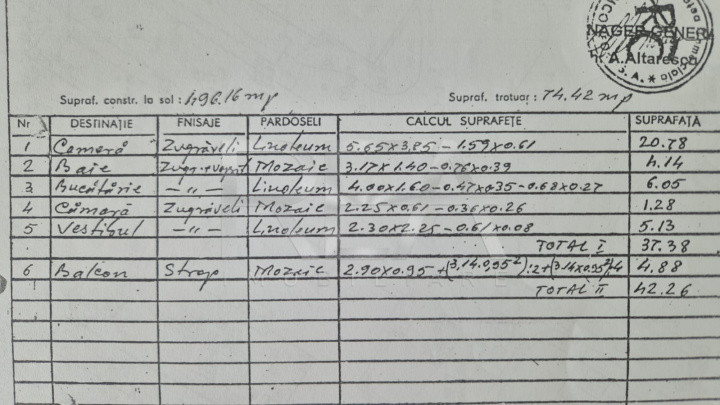 NAGER GENER
A.Altarescu
S.A.
Supraf. constr. la sol : 496.16 mp Supraf. trotuar : 74.42 mp
Nr DESTINAȚIE FNISAJE PARDOSELI CALCUL SUPRAFEȚE SUPRAFAȚA
1 Cameră Zugrăveli Linoleum 5.65x3.85 - 1.59x0.61 20.78
2 Baie Mozaic 3.17x1.40 - 0.76x0.39 4.14
3 Bucătărie -"- Linoleum 4.00x1.60 - 0.47x0.35 - 0.68x0.27 6.05
4 Cămară Zugrăveli Mozaic 2.25x0.61 - 0.36x0.26 1.28
5 Vestibul -"- Linoleum 2.30x2.25 - 0.61x0.08 5.13
TOTAL I 37.38
6 Balcon Strop Mozaic 2.90x0.95+(3,14.0,95²):2+(3.14x0.95²):4 4.88
TOTAL II 42.26